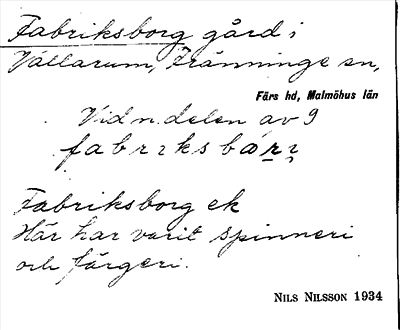 Fabriksborg gård i
Vallarum, Fränninge sn,
Färs hd, Malmöhus län
Vid n. delen av 9
Fabriksborg ek
Här har varit spinneri
och färgeri.
NILS NILSSON 1934